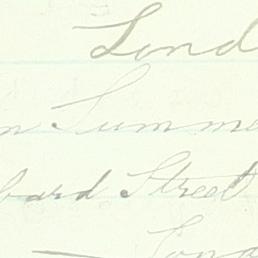 Lond
n Summe
bard Street
Lond